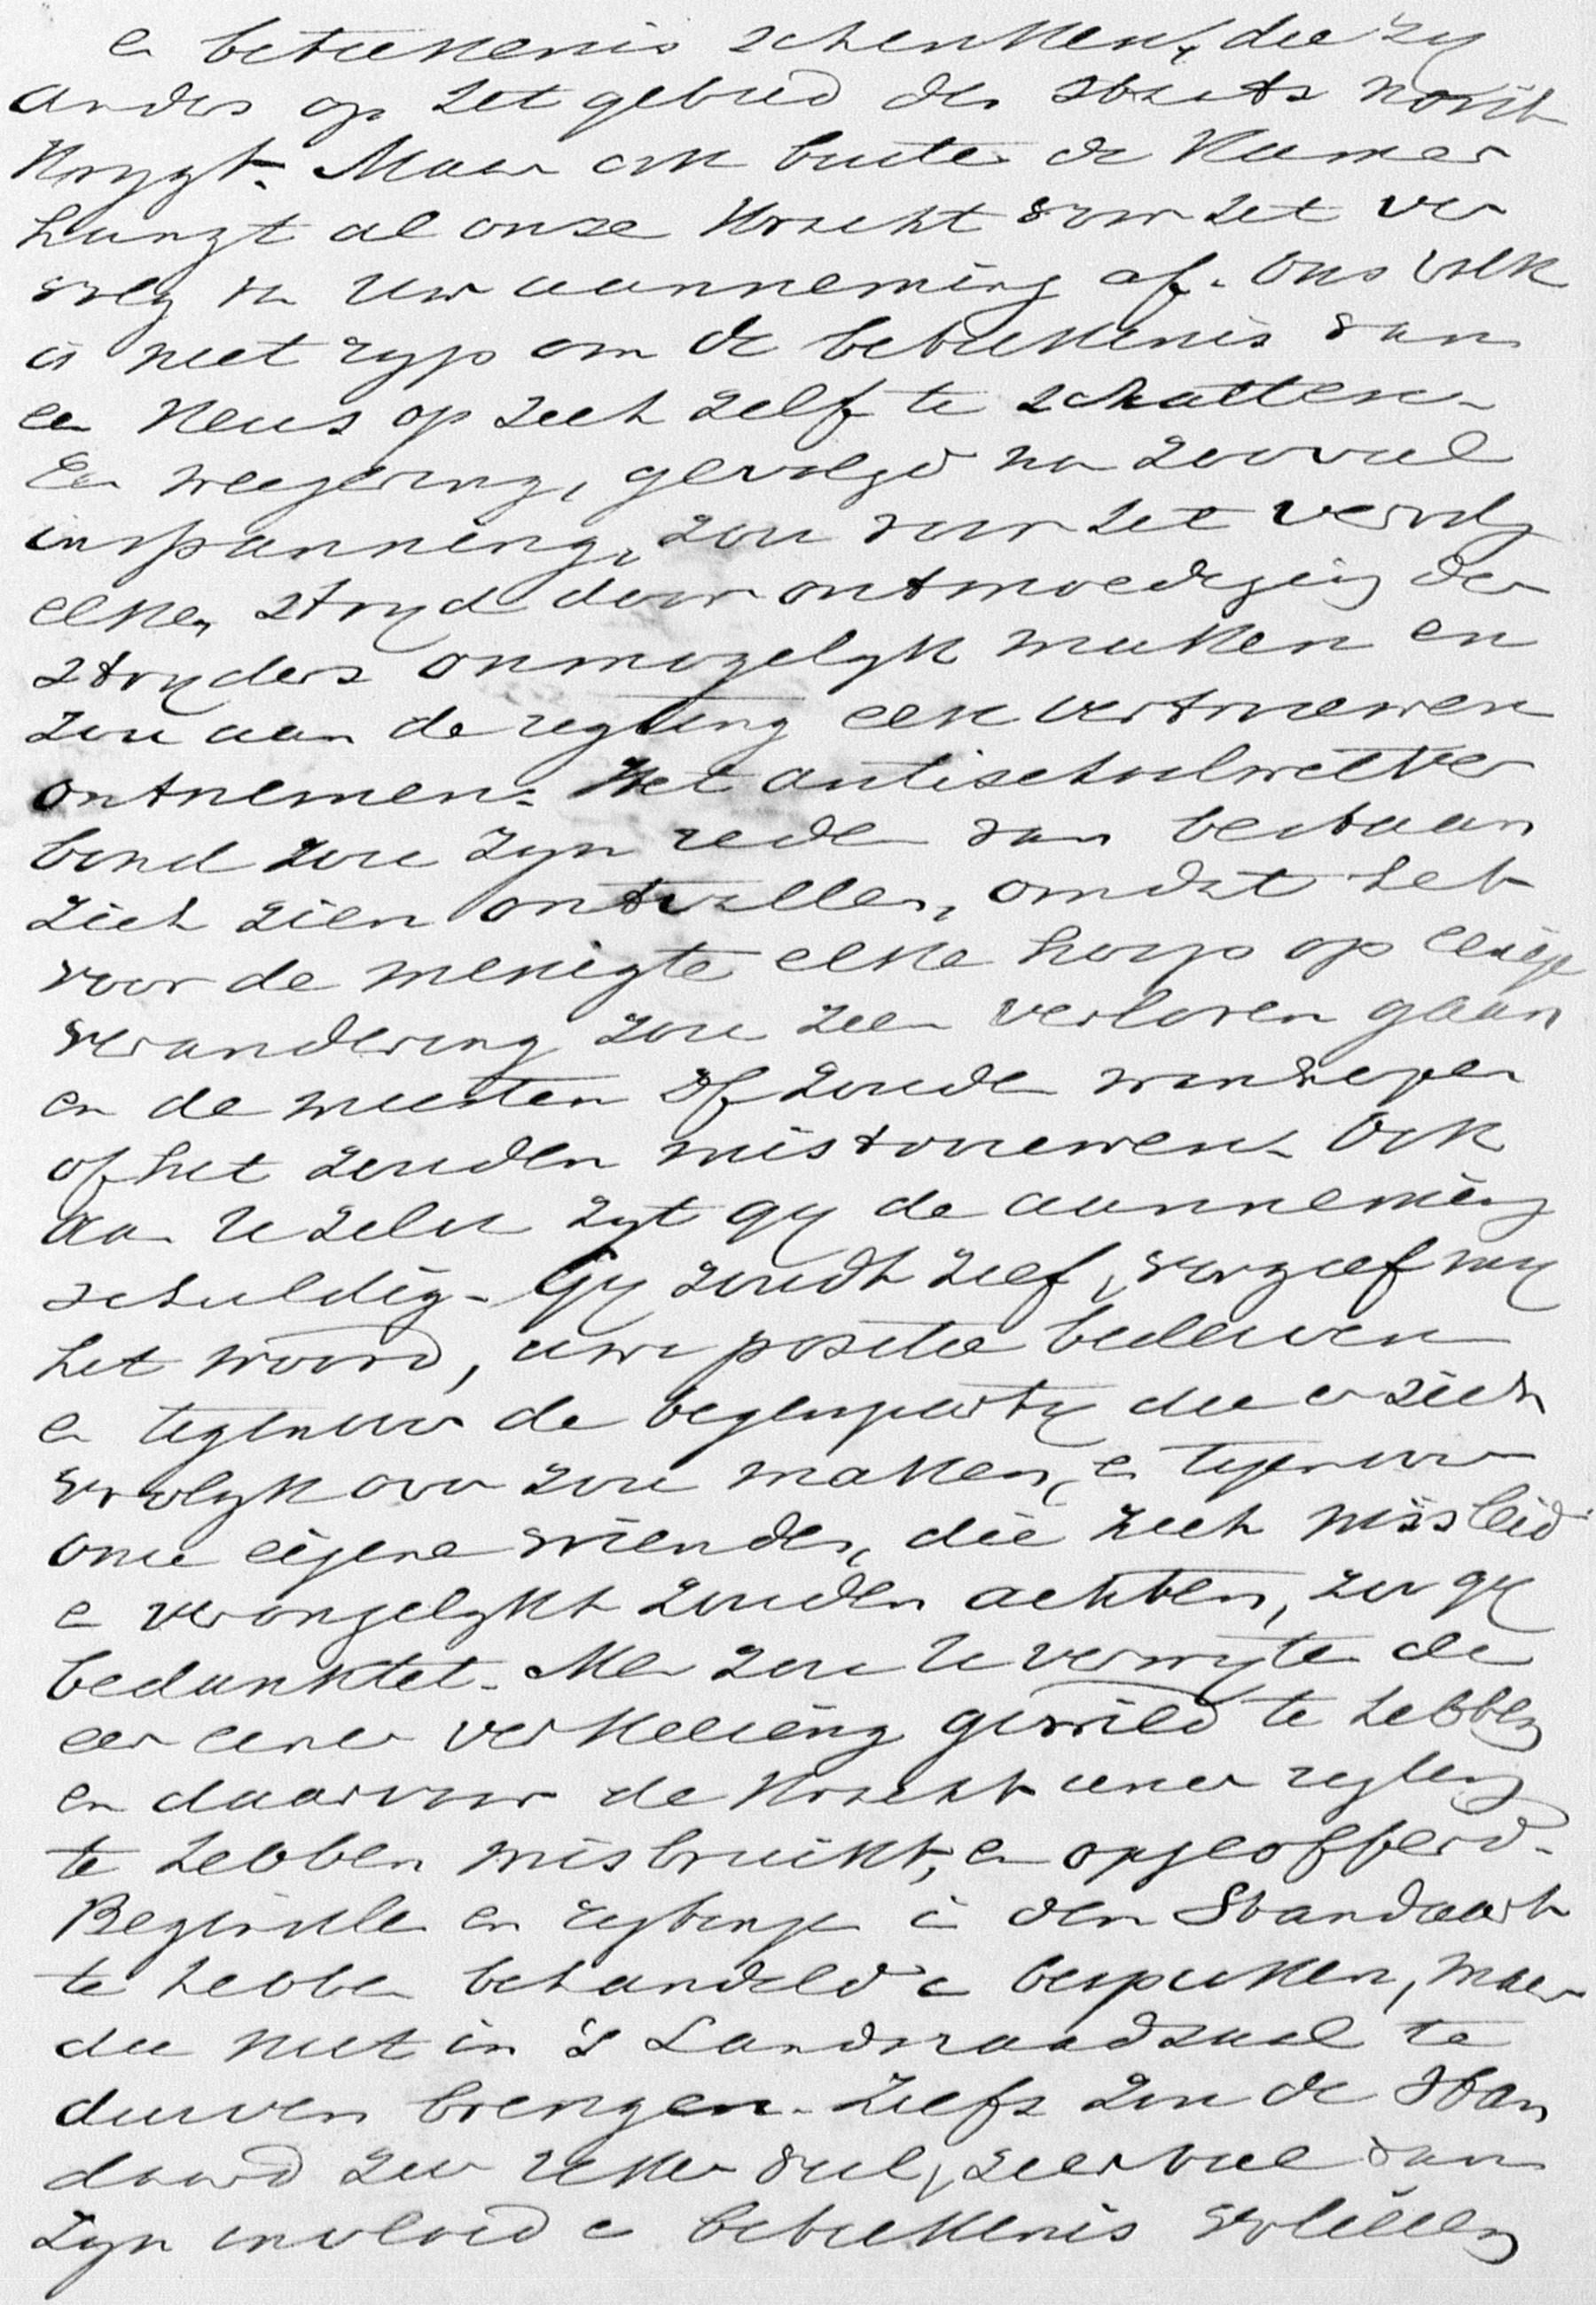 en beteekenis schenken, die zy
anders op het gebied des staats nooit
krygt. Maar ook buiten de Kamer
hangt al onze kracht voor het ver
volg van uw aanneming af. Ons volk
is niet ryp om de beteekenis van
een keus op zich zelf te schatten.
Een weigering, gevolgd na zooveel
inspanning, zou voor het vervolg
elken stryd door ontmoediging der
stryders onmogelyk maken en
zou aan de regting elk vertrouwen
ontnemen. Het antischoolwetver
bond zou zyn reden van bestaan
zich zien ontvallen, omdat het
voor de menigte elke hoop op eenige
verandering zou zien verloren gaan
en de meesten of zouden wanhopen
of het zouden mistrouwen. Ook
aan U zelve zyt gy de aanneming
schuldig. Gy zoudt zelf, vergeef my
het woord, uwe positie bederven
en tegenover de tegenparty die er zich
vrolyk over zou maken, en tegenover
onze eigene vrienden, die zich misleid
en verongelykt zouden achten, zoo gy
bedanktet. Men zou U verwyten de
eer eener verkiezing gewild te hebben
en daarvoor de kracht eener regting
te hebben misbruikt, en opgeofferd.
Beginselen en regtingen in den Standaard
te hebben behandeld en besproken, maar
die niet in 's Landsraadzaal te
durven brengen. Zelfs zou de Stan
daard zeer zeker veel, zeer veel van
zyn invloed en beteekenis verliezen